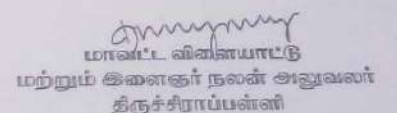 மாவட்ட விளையாட்டு
மற்றும் இளைஞர் நலன் அலுவலர்
திருச்சிராப்பள்ளி